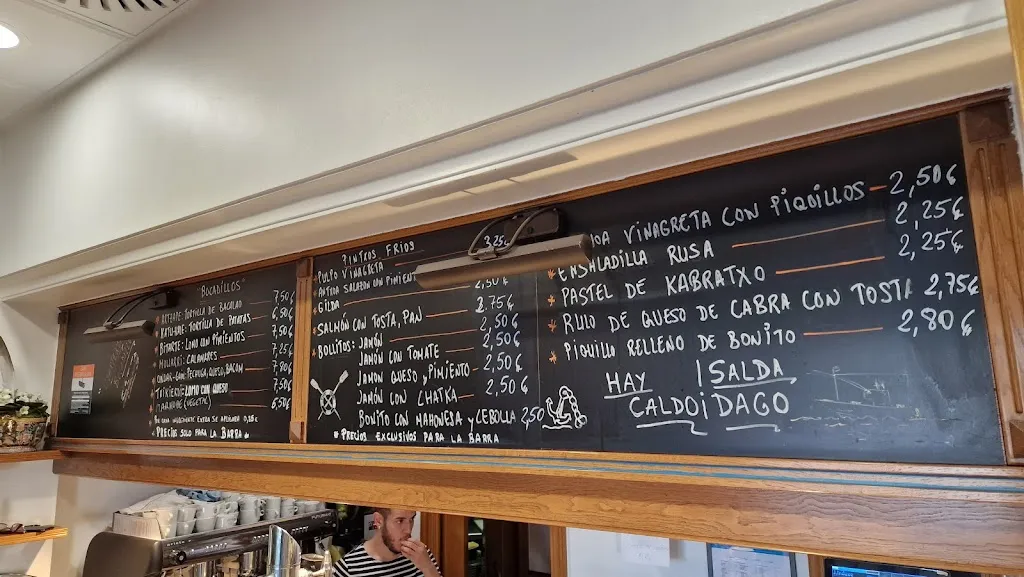 BOCADILLOS
TORTILLA DE BACALAO 7,50€
TORTILLA DE PATATAS 6,50€
LOMO CON PIMIENTOS 7,50€
CALAMARES 7,25€
PECHUGA, QUESO, BACON 7,90€
LOMO CON QUESO 7,50€
6,50€
PRECIOS SOLO PARA LA BARRA
PINTXOS FRIOS
PULPO VINAGRETA 3,25€
SALMON CON PIMIENT
GILDA 2,75€
SALMÓN CON TOSTA, PAN 2,50€
BOLLITOS: JAMÓN 2,50€
JAMÓN CON TOMATE 2,50€
JAMON QUESO Y PIMIENTO 2,50€
JAMÓN CON CHATKA
BONITO CON MAHONESA Y CEBOLLA 2,50
* PRECIOS EXCLUSIVOS PARA LA BARRA
VINAGRETA CON PIQUILLOS 2,50€
* ENSALADILLA RUSA 2,25€
* PASTEL DE KABRATXO 2,25€
* RULO DE QUESO DE CABRA CON TOSTA 2,75€
* PIQUILLO RELLENO DE BONITO 2,80€
HAY | SALDA
CALDO¡ DAGO